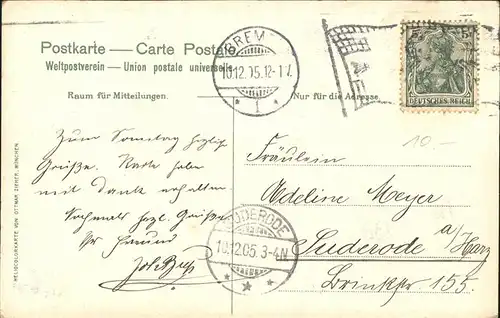 Postkarte — Carte Postale
Weltpostverein — Union postale universelle
Raum für Mitteilungen.
Nur für die Adresse.
BREM
10.12.05.12-1V.
* 1 *
5 5
DEUTSCHES REICH
10.-
Zum Sonntag herzliche
Grüße. Karte haben
mit Dank erhalten
Nochmals herzl. Grüße
Ihr Freund
Fräulein
Adeline Meyer
Suderode a/Harz
Brinkstr 155.
SUDERODE
10.12.05.3-4N
HELIOCOLORKARTE VON OTTMAR ZIEHER, MÜNCHEN